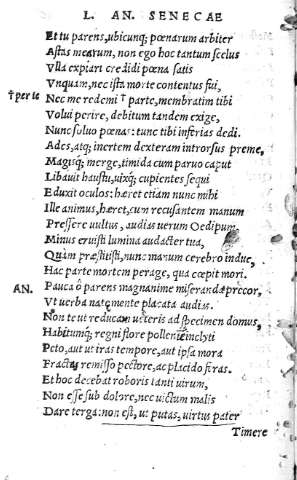 L. AN. SENECAE
Et tu parens, ubicunq; pœnarum arbiter
Astas mearum, non ego hoc tantum scelus
Vlla expiari credidi pœna satis
Vnquam, nec ista morte contentus fui,
†per te Nec me redemi † parte, membratim tibi
Volui perire, debitum tandem exige,
Nunc soluo pœnas: tunc tibi inferias dedi.
Ades, atq; inertem dexteram introrsus preme,
Magisq; merge, timida cum paruo caput
Libauit haustu, uixq; cupientes sequi
Eduxit oculos: hæret etiam nunc mihi
Ille animus, hæret, cum recusantem manum
Pressere uultus, audias uerum Oedipum.
Minus eruisti lumina audacter tua,
Quàm præstitisti, nunc manum cerebro indue,
Hac parte mortem perage, qua cœpit mori.
AN. Pauca ô parens magnanime miseranda precor,
Vt uerba natę mente placata audias.
Non te ut reducam ueteris ad specimen domus,
Habitumq; regni flore pollenti inclyti
Peto, aut ut iras tempore, aut ipsa mora
Fractus remisso pectore, ac placido feras.
Et hoc decebat roboris tanti uirum,
Non esse sub dolore, nec uictum malis
Dare terga: non est, ut putas, uirtus pater
Timere